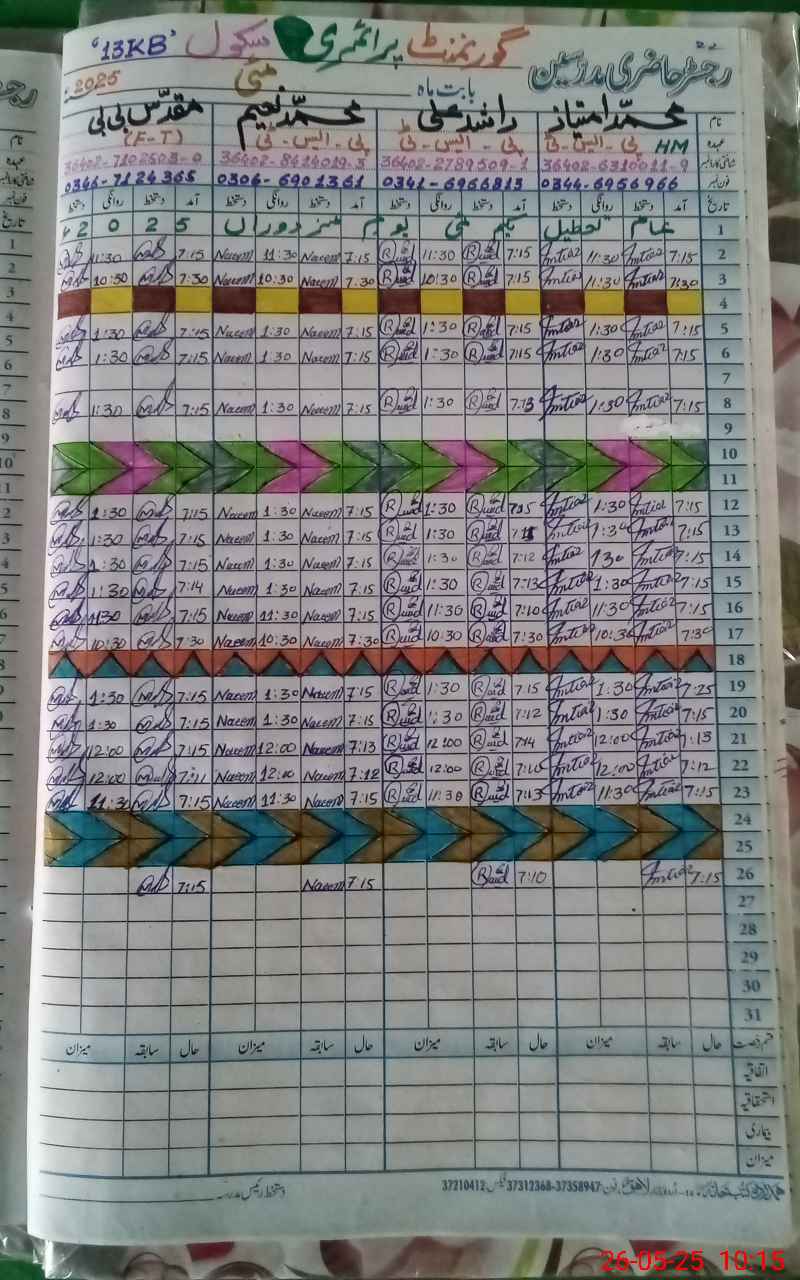 رجسٹر حاضری مدرسین گورنمنٹ پرائمری سکول '13KB'
بابت ماہ مئی 2025
نام محمد امتیاز راشد علی محمد نعیم مقدس بی بی
عہدہ HM پی - ایس - ٹی پی - ایس - ٹی پی - ایس - ٹی (E-T)
36402-6310011-9 36402-2789509-1 36402-8414019-3 36402-7102503-0
فون نمبر 0344-6956966 0341-6966813 0306-6901361 0346-7124365
تاریخ آمد دستخط روانگی دستخط آمد دستخط روانگی دستخط آمد دستخط روانگی دستخط آمد دستخط روانگی دستخط
1 عام تعطیل یکم مئی یوم مزدوراں 2025
2 7:15 Imtiaz 11:30 Imtiaz 7:15 11:30 7:15 Naeem 11:30 Naeem 7:15 11:30
3 7:30 Imtiaz 11:30 Imtiaz 7:15 10:30 7:30 Naeem 10:30 Naeem 7:30 10:30
4
5 7:15 Imtiaz 1:30 Imtiaz 7:15 1:30 7:15 Naeem 1:30 Naeem 7:15 1:30
6 7:15 Imtiaz 1:30 Imtiaz 7:15 1:30 7:15 Naeem 1:30 Naeem 7:15 1:30
7
8 7:15 Imtiaz 1:30 Imtiaz 7:13 1:30 7:15 Naeem 1:30 Naeem 7:15 1:30
9
10
11
12 7:15 Imtiaz 1:30 Imtiaz 1:30 7:15 Naeem 1:30 Naeem 7:15 1:30
13 7:15 Imtiaz 1:30 Imtiaz 1:30 7:15 Naeem 1:30 Naeem 7:15 1:30
14 7:15 Imtiaz 130 Imtiaz 7:12 1:30 7:15 Naeem 1:30 Naeem 7:15 1:30
15 7:15 Imtiaz 1:30 Imtiaz 7:13 1:30 7:15 Naeem 1:30 Naeem 7:14 1:30
16 7:15 Imtiaz 11:30 Imtiaz 7:10 11:30 7:15 Naeem 11:30 Naeem 7:15 11:30
17 7:30 Imtiaz 10:30 Imtiaz 7:30 10:30 7:30 Naeem 10:30 Naeem 7:30 10:30
18
19 7:25 Imtiaz 1:30 Imtiaz 7:15 1:30 7:15 Naeem 1:30 Naeem 7:15 1:30
20 7:15 Imtiaz 1:30 Imtiaz 7:12 1:30 7:15 Naeem 1:30 Naeem 7:15 1:30
21 7:13 Imtiaz 12:00 Imtiaz 7:14 12:00 7:13 Naeem 12:00 Naeem 7:15 12:00
22 7:12 Imtiaz 12:00 Imtiaz 7:10 12:00 7:12 Naeem 12:00 Naeem 7:11 12:00
23 7:15 Imtiaz 11:30 Imtiaz 7:13 11:30 7:15 Naeem 11:30 Naeem 7:15 11:30
24
25
26 7:15 Imtiaz 7:10 7:15 Naeem 7:15
27
28
29
30
31
قسم رخصت حال سابقہ میزان حال سابقہ میزان حال سابقہ میزان حال سابقہ میزان
اتفاقیہ
استحقاقیہ
بیماری
میزان
37210412 37312368-37358947
دستخط رئیس مدرسہ
26-05-25 10:15